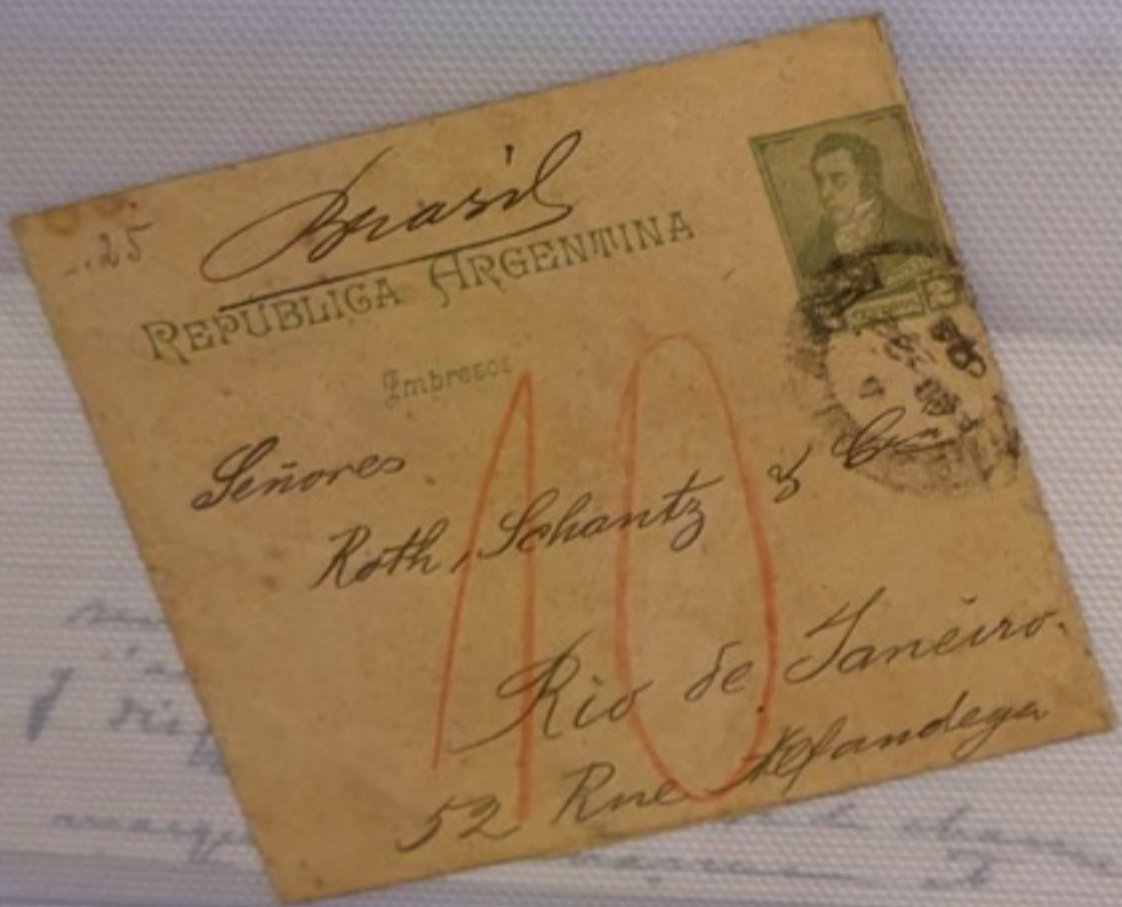 -.25
Brasil
REPÚBLICA ARGENTINA
Impresos
Señores
Roth, Schantz & Cia
Rio de Janeiro.
52 Rue Alfandega
10